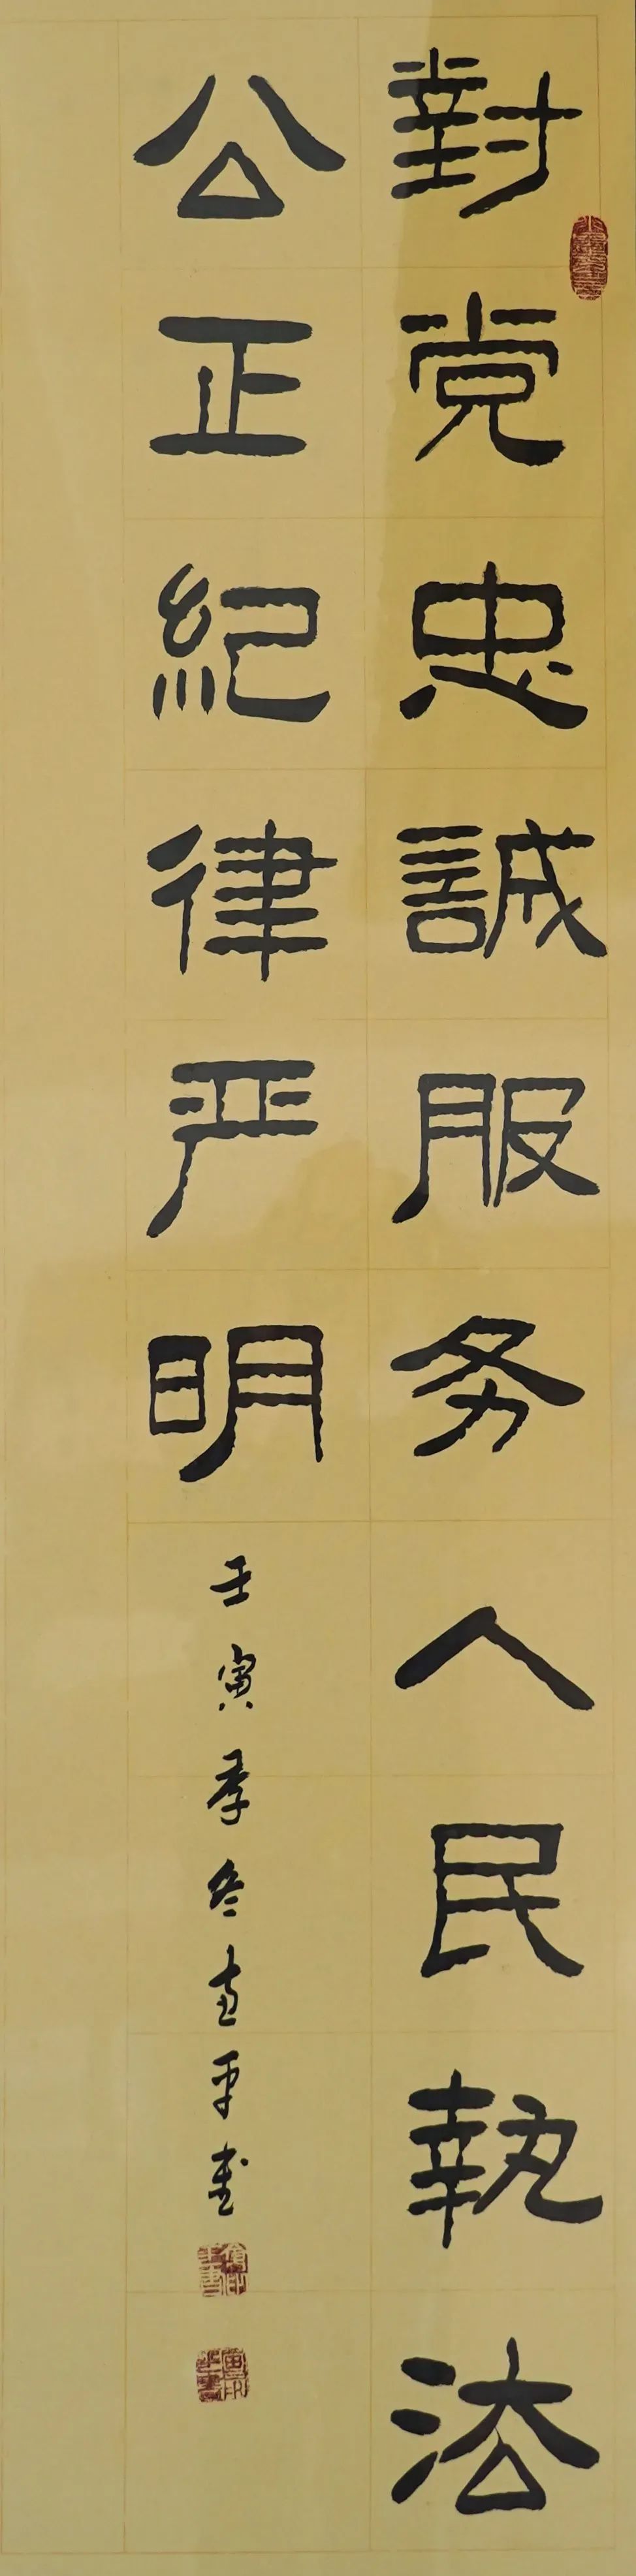 對党忠誠服务人民執法
公正紀律严明
壬寅季冬志平書